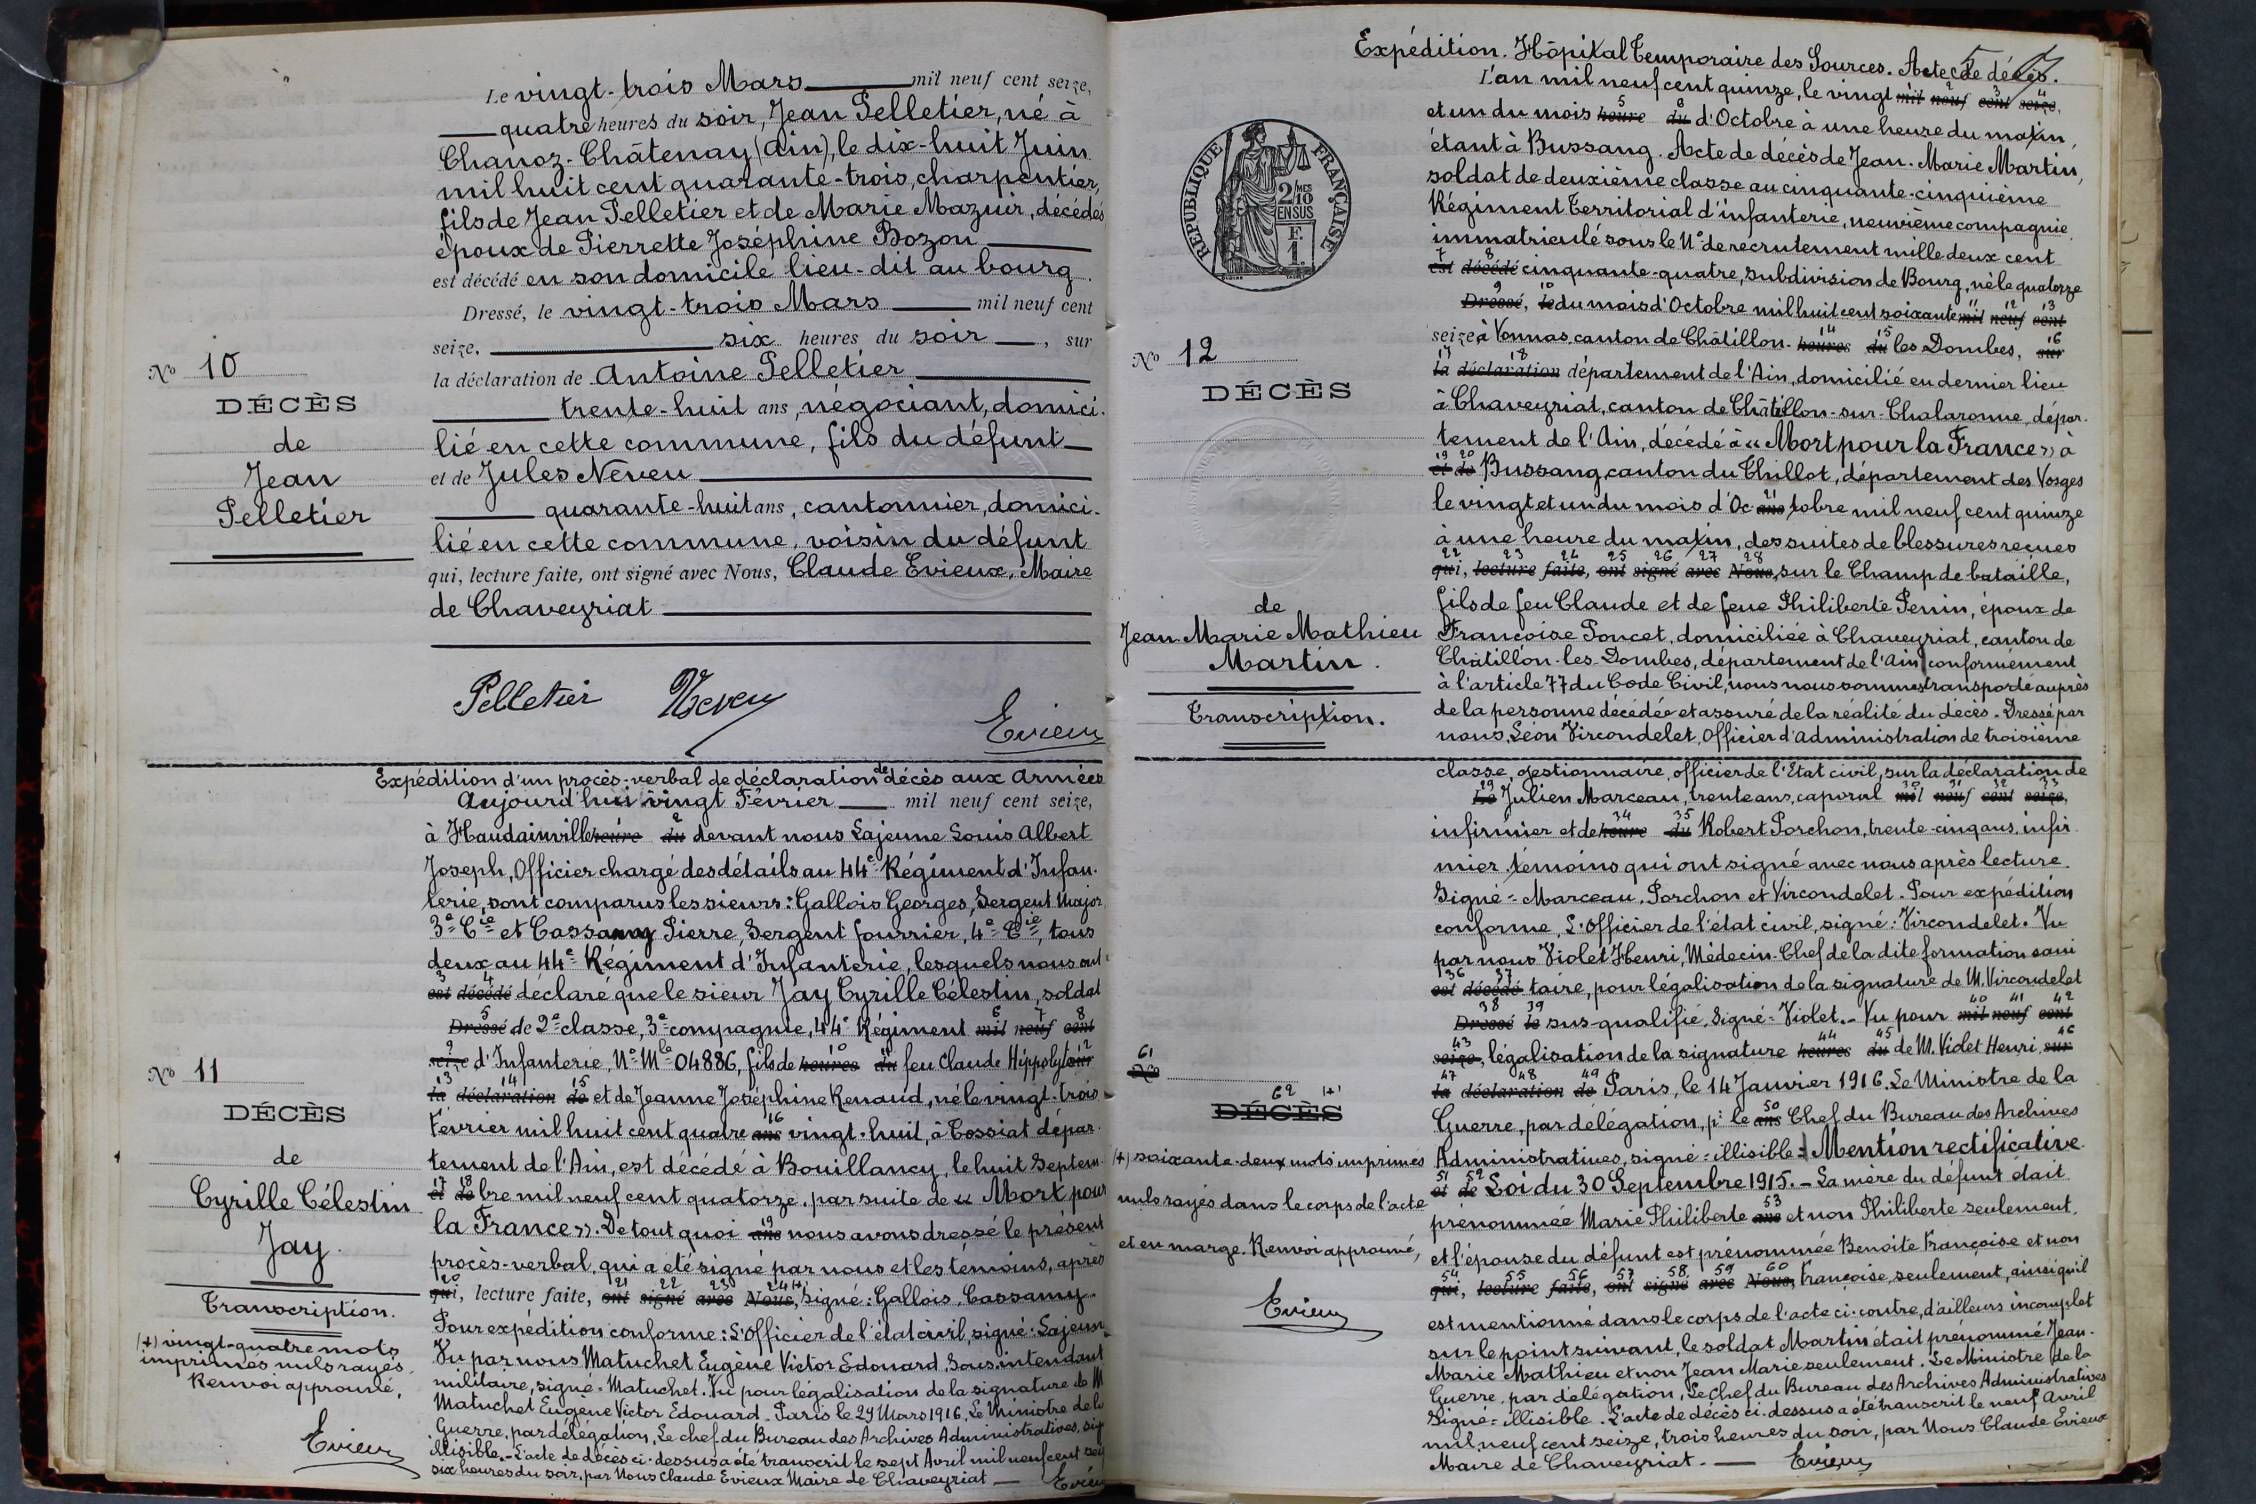 Le vingt-trois Mars mil neuf cent seize,
quatre heures du soir, Jean Pelletier, né à
Chanoz-Châtenay (Ain), le dix-huit Juin
mil huit cent quarante-trois, charpentier,
fils de Jean Pelletier et de Marie Mazuir, décédés
époux de Pierrette Joséphine Bozon
est décédé en son domicile lieu-dit au bourg.
Dressé, le vingt-trois Mars mil neuf cent
seize, six heures du soir, sur
la déclaration de Antoine Pelletier
trente-huit ans, négociant, domici-
lié en cette commune, fils du défunt
et de Jules Neveu
quarante-huit ans, cantonnier, domici-
lié en cette commune, voisin du défunt
qui, lecture faite, ont signé avec Nous, Claude Evieux, Maire
de Chaveyriat
No 10
DÉCÈS
de
Jean
Pelletier
Pelletier Neveu
Evieux
Expédition d'un procès-verbal de déclaration de décès aux Armées
Aujourd'hui vingt Février mil neuf cent seize,
à Haudainville heure 2 du devant nous Lajeune Louis Albert
Joseph, Officier chargé des détails au 44e Régiment d'Infan-
terie, sont comparus les sieurs: Gallois Georges, Sergent Major
3e Cie et Cassamy Pierre, Sergent fourrier, 4e Cie, tous
deux au 44e Régiment d'Infanterie, lesquels nous ont
3 est 4 décédé declaré que le sieur Jay Cyrille Célestin, soldat
5 Dressé de 2e classe, 3e compagnie, 44e Régiment 6 mil 7 neuf 8 cent
9 seize d'Infanterie, No Mle 04886, fils de 10 heures 11 du feu Claude Hippolyte 12 sur
13 la 14 déclaration 15 de et de Jeanne Joséphine Renaud, né le vingt-trois
Février mil huit cent quatre 16 ans vingt-huit, à Cossiat dépar-
tement de l'Ain, est décédé à Bouillancy, le huit Septem-
17 et 18 de bre mil neuf cent quatorze, par suite de « Mort pour
la France ». De tout quoi 19 ans nous avons dressé le présent
procès-verbal, qui a été signé par nous et les témoins, après
20 qui, lecture faite, 21 ont 22 signé 23 avec 24 Nous, (+) Signé: Gallois, Cassamy
Pour expédition conforme: L'Officier de l'état civil, signé: Lajeune
Vu par nous Matuchet Eugène Victor Edouard Sous-intendant
militaire, signé = Matuchet. Vu pour légalisation de la signature de M
Matuchet Eugène Victor Edouard. Paris le 29 Mars 1916, Le Ministre de la
Guerre, par délégation, Le chef du Bureau des Archives Administratives, sig
illisible. - L'acte de décès ci-dessus a été transcrit le sept Avril mil neuf cent sei
six heures du soir, par Nous Claude Evieux Maire de Chaveyriat Evieux
No 11
DÉCÈS
de
Cyrille Célestin
Jay.
Transcription.
(+) vingt-quatre mots
imprimés nuls rayés.
Renvoi approuvé,
Evieux
Expédition. Hôpital Temporaire des Sources. Acte de décès.
L'an mil neuf cent quinze, le vingt mil 2 neuf 3 cent 4 seize,
et un du mois 5 heure 6 du d'Octobre à une heure du matin,
étant à Bussang. Acte de décès de Jean-Marie Martin,
soldat de deuxième classe au cinquante-cinquième
Régiment Territorial d'infanterie, neuvième compagnie,
immatriculé sous le No de recrutement mille deux cent
7 est 8 décédé cinquante-quatre, subdivision de Bourg, né le quatorze
9 Dressé, 10 le du mois d'Octobre mil huit cent soixante 11 mil 12 neuf 13 cent
seize à Vonnas, canton de Châtillon- 14 heures 15 du les Dombes, 16 sur
17 la 18 déclaration département de l'Ain, domicilié en dernier lieu
à Chaveyriat, canton de Châtillon-sur-Chalaronne, dépar-
tement de l'Ain, décédé à « Mort pour la France » à
19 et 20 de Bussang, canton du Thillot, département des Vosges
le vingt et un du mois d'Oc 21 ans tobre mil neuf cent quinze
à une heure du matin, des suites de blessures reçues
22 qui, 23 lecture 24 faite, 25 ont 26 signé 27 avec 28 Nous, sur le Champ de bataille,
fils de feu Claude et de feue Philiberte Penin, époux de
Françoise Poncet, domiciliée à Chaveyriat, canton de
Châtillon-les-Dombes, département de l'Ain conformément
à l'article 77 du Code Civil, nous nous sommes transporté auprès
de la personne décédée et assuré de la réalité du décès. Dressé par
nous, Léon Vircondelet, Officier d'Administration de troisième
classe, gestionnaire, officier de l'Etat civil, sur la déclaration de
29 Le Julien Marceau, trente ans, caporal 30 mil 31 neuf 32 cent 33 seize,
infirmier et de 34 heure 35 du Robert Porchon, trente-cinq ans, infir-
mier, témoins qui ont signé avec nous après lecture.
Signé = Marceau, Porchon et Vircondelet. Pour expédition
conforme, L'officier de l'état civil, signé: Vircondelet. Vu
par nous Violet Henri, Médecin-Chef de la dite formation sani-
36 est 37 décédé taire, pour légalisation de la signature de M. Vircondelet
38 Dressé 39 le sus-qualifié, Signé = Violet. - Vu pour 40 mil 41 neuf 42 cent
43 seize, légalisation de la signature 44 heures 45 du de M. Violet Henri, 46 sur
47 la 48 déclaration 49 de Paris, le 14 Janvier 1916. Le Ministre de la
Guerre, par délégation, pr le 50 ans Chef du Bureau des Archives
Administratives, signé = illisible = Mention rectificative.
51 et 52 de Loi du 30 Septembre 1915. - La mère du défunt était
prénommée Marie Philiberte 53 ans et non Philiberte seulement,
et l'épouse du défunt est prénommée Benoite Françoise et non
54 qui, 55 lecture 56 faite, 57 ont 58 signé 59 avec 60 Nous, Françoise, seulement, ainsi qu'il
est mentionné dans le corps de l'acte ci-contre, d'ailleurs incomplet
sur le point suivant, le soldat Martin était prénommé Jean-
Marie Mathieu et non Jean Marie seulement. Le Ministre de la
Guerre, par délégation, Le Chef du Bureau des Archives Administratives
Signé = illisible. L'acte de décès ci-dessus a été transcrit le neuf Avril
mil neuf cent seize, trois heures du soir, par Nous Claude Evieux
Maire de Chaveyriat. Evieux
RÉPUBLIQUE FRANÇAISE
2/10 MES
EN SUS
F.
1
No 12
DÉCÈS
de
Jean-Marie Mathieu
Martin.
Transcription.
61
No
62 (+)
DÉCÈS
(+) soixante-deux mots imprimés
nuls rayés dans le corps de l'acte
et en marge. Renvoi approuvé,
Evieux